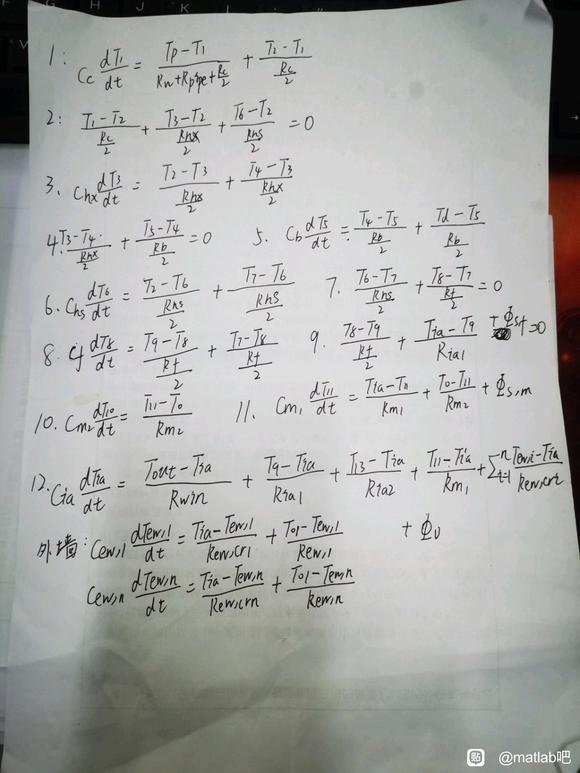 1: Cc dT1/dt = (Tp-T1)/(Rw+Rpipe+Rc/2) + (T2-T1)/(Rc/2)
2: (T1-T2)/(Rc/2) + (T3-T2)/(Rhx/2) + (T6-T2)/(Rhs/2) = 0
3. Chx dT3/dt = (T2-T3)/(Rhx/2) + (T4-T3)/(Rhx/2)
4. (T3-T4)/(Rhx/2) + (T5-T4)/(Rb/2) = 0 5. Cb dT5/dt = (T4-T5)/(Rb/2) + (Td-T5)/(Rb/2)
6. Chs dT6/dt = (T2-T6)/(Rhs/2) + (T7-T6)/(RhS/2) 7. (T6-T7)/(Rhs/2) + (T8-T7)/(Rf/2) = 0
8. Cf dT8/dt = (T9-T8)/(Rf/2) + (T7-T8)/(Rf/2) 9. (T8-T9)/(Rf/2) + (Tia-T9)/Ria1 + Φs,f=0
10. Cm2 dT10/dt = (T11-T10)/Rm2 11. Cm1 dT11/dt = (Tia-T11)/Rm1 + (T10-T11)/Rm2 + Φs,m
12. Cia dTia/dt = (Tout-Tia)/Rwin + (T9-Tia)/Ria1 + (T13-Tia)/Ria2 + (T11-Tia)/Rm1 + Σⁿᵢ₌₁ (Tew,i-Tia)/Rew,cri
+ Φv
外墙: Cew,1 dTew,1/dt = (Tia-Tew,1)/Rew,cr1 + (To1-Tew,1)/Rew,1
Cew,n dTew,n/dt = (Tia-Tew,n)/Rew,crn + (To1-Tew,n)/Rew,n
贴 @matlab吧